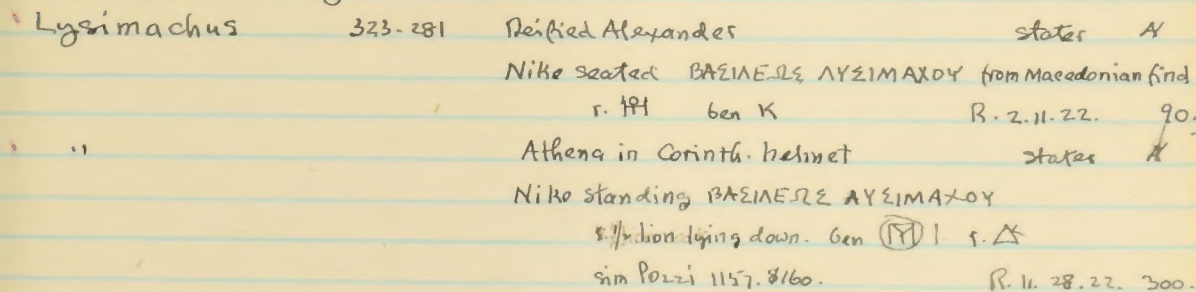 Lysimachus 323-281 Deified Alexander stater N
Nike seated ΒΑΣΙΛΕΩΣ ΛΥΣΙΜΑΧΟΥ from Macedonian find
r. ben K R. 2.11.22. 90.
" Athena in Corinth. helmet stater N
Nike standing ΒΑΣΙΛΕΩΣ ΛΥΣΙΜΑΧΟΥ
lion lying down. ben r.
sim Pozzi 1157. $160. R. 11. 28. 22. 300.